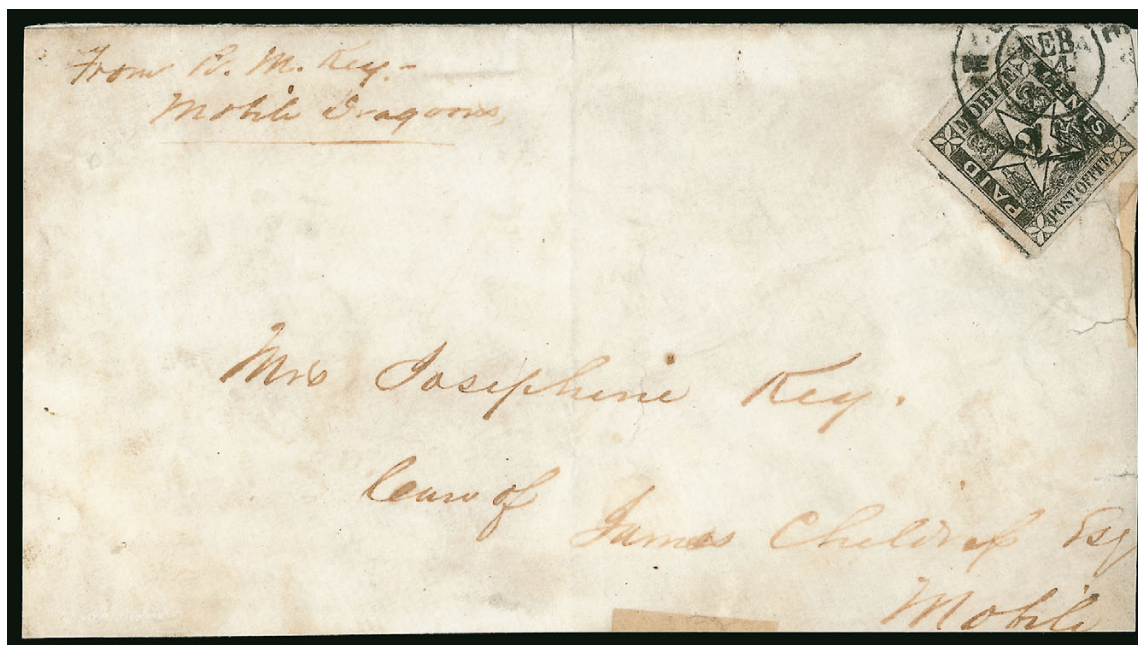 From B. M. Key.-
Mobile Dragoons,
FEB
4
MOBILE
2
CENTS
PAID
POST OFFICE
Mrs Josephine Key.
Care of
James Childress Esq
Mobile